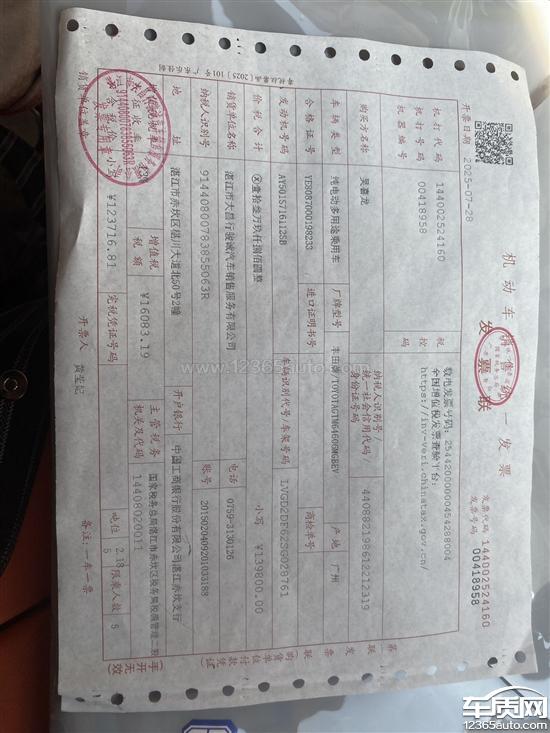 机动车销售统一发票
发票联
发票代码 144002524160
发票号码 00418958
开票日期 2025-07-28
机打代码 144002524160
机打号码 00418958
机器编号
税控码
数电发票号码：25442000000454288004
全国增值税发票查验平台：
https://inv-veri.chinatax.gov.cn/
购买方名称 吴嘉龙
纳税人识别号/
统一社会信用代码/
身份证号码
440882198612212319
车辆类型 纯电动多用途乘用车
厂牌型号 丰田牌 TOYOTAGTM6460GMGBEV
产地 广州
合格证号 YD8087000198233
进口证明书号
商检单号
发动机号码 AY501S716112SB
车辆识别代号/车架号码 LVGD2DF62SG028761
价税合计 ⊗壹拾叁万玖仟捌佰圆整
小写 ￥139800.00
销货单位名称 湛江市大昌行骏诚汽车销售服务有限公司
电话 0759-3130126
纳税人识别号 91440800783855063R
账号 2015020409201023188
地址 湛江市赤坎区椹川大道北50号2幢
开户银行 中国工商银行股份有限公司湛江赤坎支行
13%
增值税
税额
￥16083.19
主管税务
机关及代码
国家税务总局湛江市赤坎区税务局税源管理二股
14408020011
小写 ￥123716.81
完税凭证号码
吨位 2.18
5
限乘人数 5
销货单位盖章
开票人
备注：一车一票
第一联 发票联（购货单位付款凭证）
（手开无效）
www.12365auto.com
车质网
12365auto.com